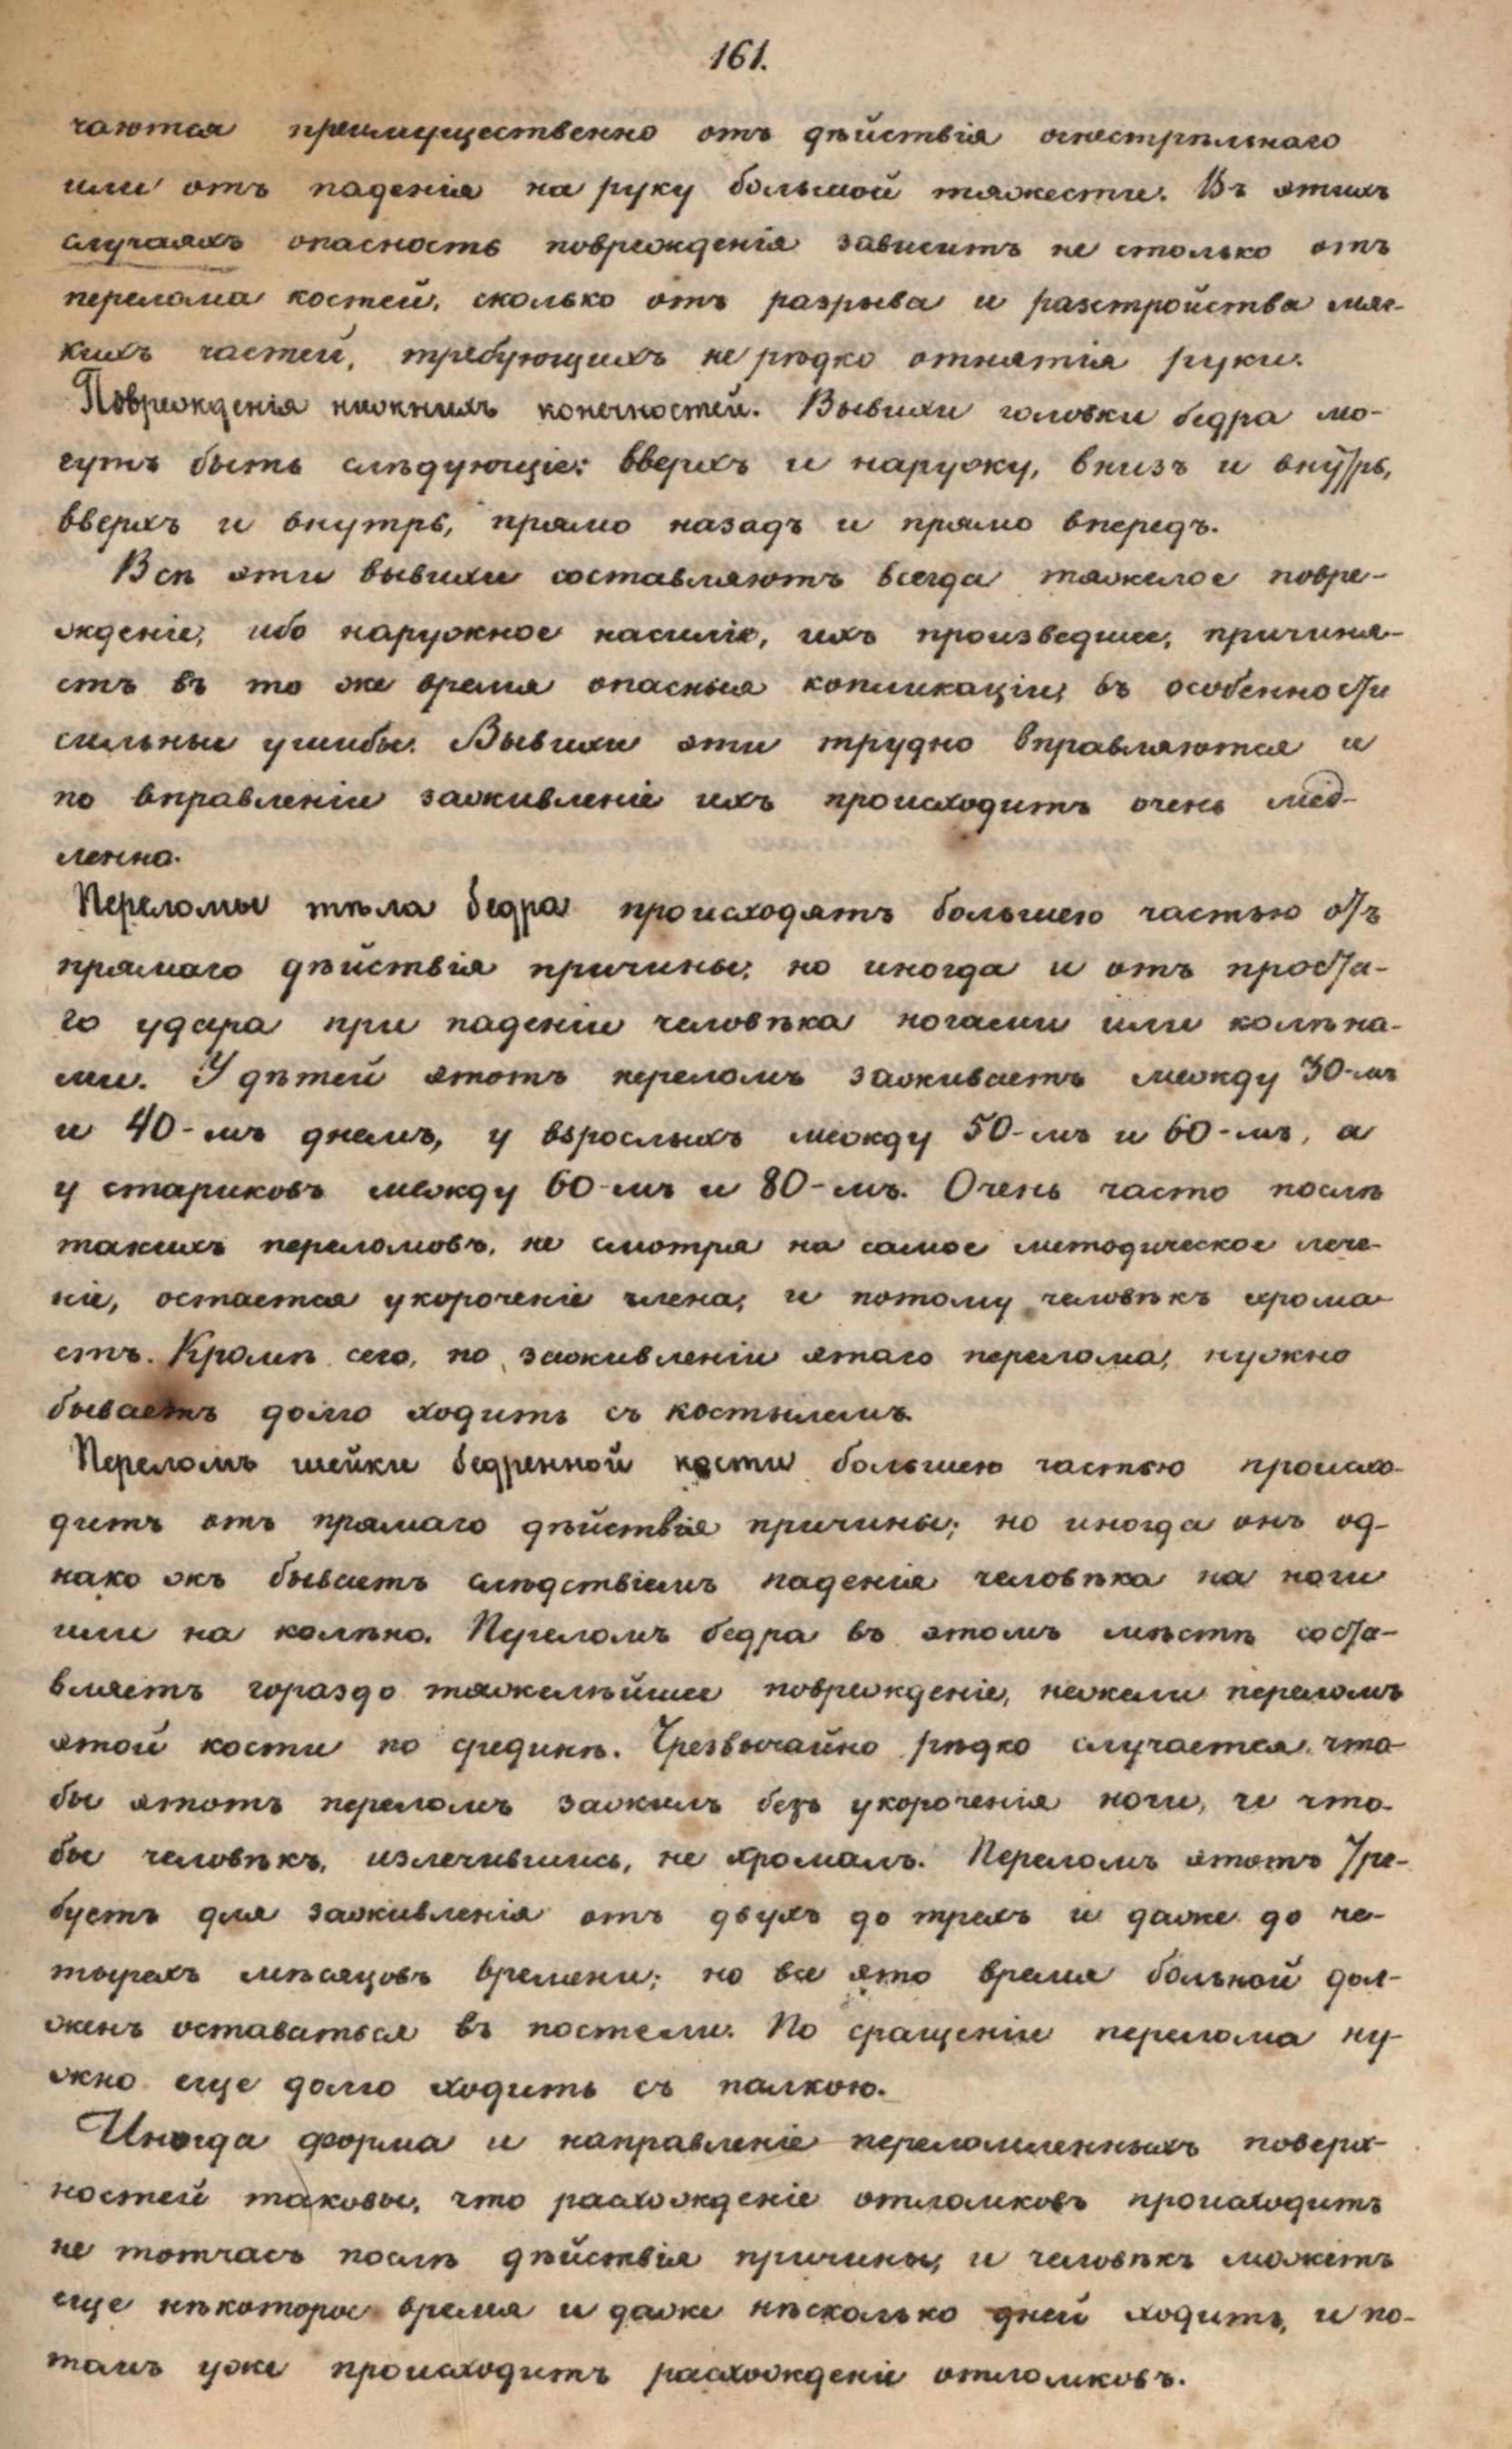 161.
чаются преимущественно отъ дѣйствія огнестрѣльнаго
или отъ паденія на руку большой тяжести. Въ этихъ
случаяхъ опасность поврежденія зависитъ не столько отъ
перелома костей, сколько отъ разрыва и разстройства мяг-
кихъ частей, требующихъ не рѣдко отнятія руки.
Поврежденія нижнихъ конечностей. Вывихи головки бедра мо-
гутъ быть слѣдующіе: вверхъ и наружу, внизъ и внутрь,
вверхъ и внутрь, прямо назадъ и прямо впередъ.
Всѣ эти вывихи составляютъ всегда тяжелое повре-
жденіе, ибо наружное насиліе, ихъ произведшее, причиня-
етъ въ то же время опасныя копликаціи, въ особенности
сильные ушибы. Вывихи эти трудно вправляются и
по вправленіи заживленіе ихъ происходитъ очень мед-
ленно.
Переломы тѣла бедра происходятъ большею частью отъ
прямаго дѣйствія причины; но иногда и отъ проста-
го удара при паденіи человѣка ногами или колѣна-
ми. У дѣтей этотъ переломъ заживаетъ между 30-мъ
и 40-мъ днемъ, у взрослыхъ между 50-мъ и 60-мъ, а
у стариковъ между 60-мъ и 80-мъ. Очень часто послѣ
такихъ переломовъ, не смотря на самое методическое лече-
ніе, остается укороченіе члена; и потому человѣкъ хрома-
етъ. Кромѣ сего, по заживленіи этаго перелома, нужно
бываетъ долго ходить съ костылемъ.
Переломъ шейки бедренной кости большею частью происхо-
дитъ отъ прямаго дѣйствія причины; но иногда онъ од-
нако жъ бываетъ слѣдствіемъ паденія человѣка на ноги
или на колѣно. Переломъ бедра въ этомъ мѣстѣ соста-
вляетъ гораздо тяжелѣйшее поврежденіе, нежели переломъ
этой кости по срединѣ. Чрезвычайно рѣдко случается, что-
бы этотъ переломъ зажилъ безъ укороченія ноги, и что-
бы человѣкъ, излечившись, не хромалъ. Переломъ этотъ тре-
буетъ для заживленія отъ двухъ до трехъ и даже до че-
тырехъ мѣсяцовъ времени; но все это время больной дол-
женъ оставаться въ постели. По сращеніи перелома ну-
жно еще долго ходить съ палкою.
Иногда форма и направленіе переломленныхъ поверх-
ностей таковы, что расхожденіе отломковъ происходитъ
не тотчасъ послѣ дѣйствія причины, и человѣкъ можетъ
еще нѣкоторое время и даже нѣсколько дней ходить, и по-
томъ уже происходитъ расхожденіе отломковъ.